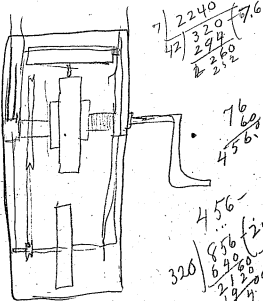 7)2240
42)320(7.6
294
260
252
76
60
4560
456-
320)856(2.
640
2160
1920